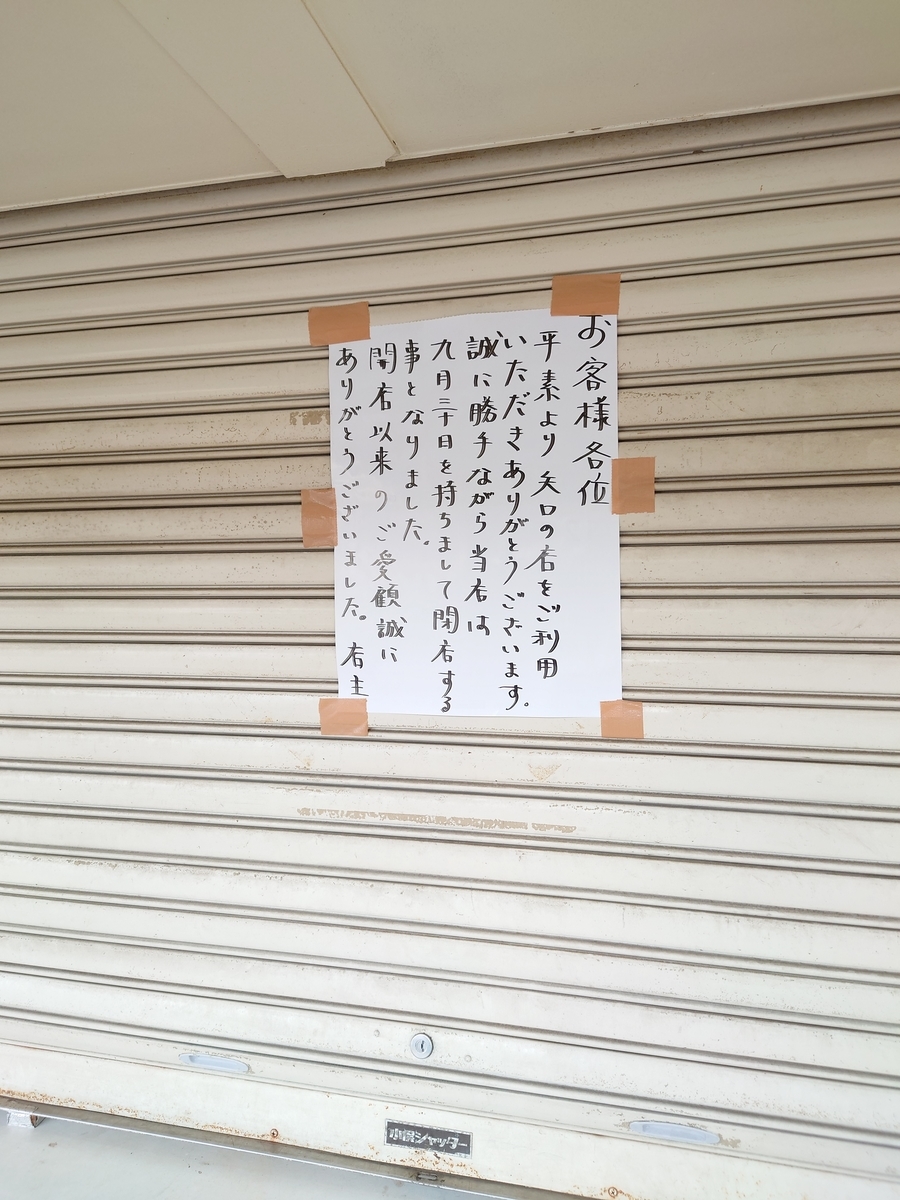 お客様各位
平素より矢口の店をご利用
いただきありがとうございます。
誠に勝手ながら当店は
九月三十日を持ちまして閉店する
事となりました。
開店以来のご愛顧誠に
ありがとうございました。店主
シャッター